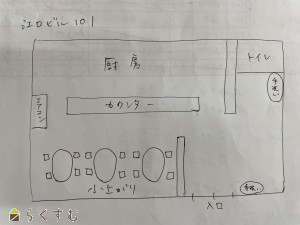 江口ビル101
厨房
トイレ
手洗い
エアコン
カウンター
小上がり
手洗い
入口
らくすむ